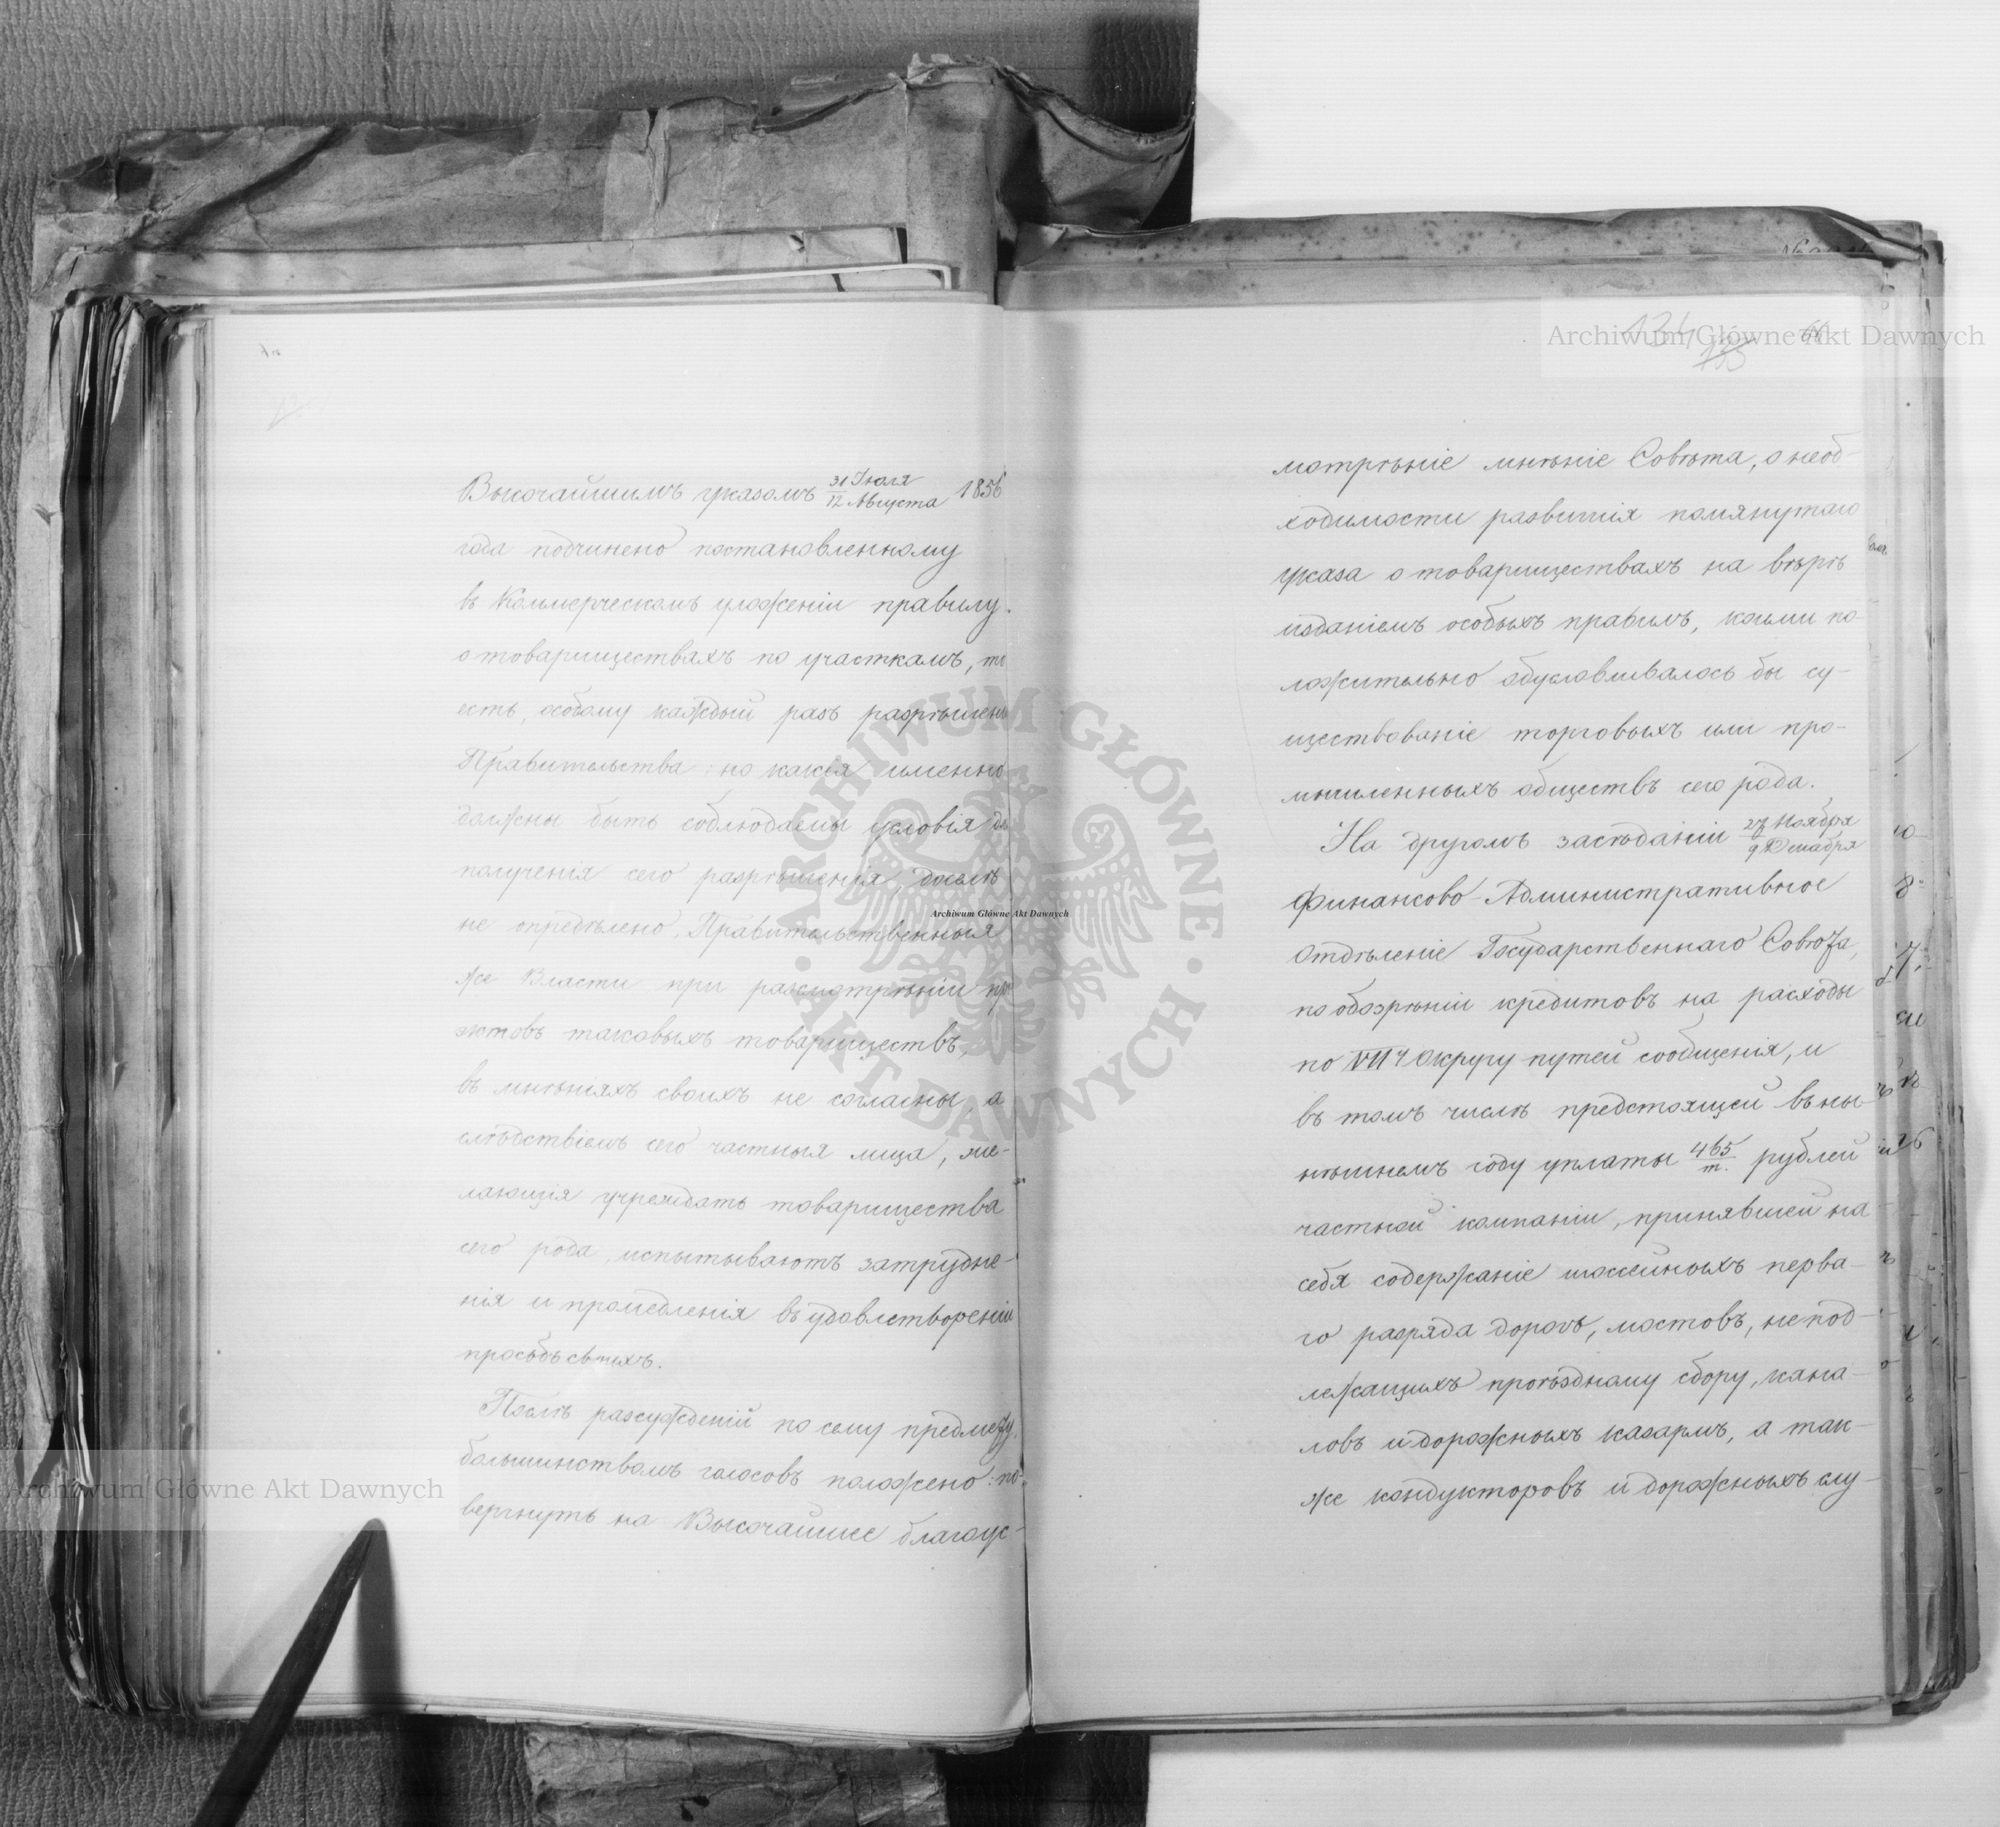 Высочайшимъ указомъ 31 Іюля / 12 Августа 1856
года подчинено постановленному
въ Коммерческомъ уложеніи правилу
о товариществахъ по участкамъ, то
есть, особому каждый разъ разрѣшенію
Правительства: но какія именно
должны быть соблюдаемы условія для
полученія сего разрѣшенія, доселѣ
не опредѣлено. Правительственныя
же Власти при разсмотрѣніи про
эктовъ таковыхъ товариществъ,
въ мнѣніяхъ своихъ не согласны, а
слѣдствіемъ сего частныя лица, же-
лающія учреждать товарищества
сего рода, испытываютъ затрудне-
нія и промедленія въ удовлетвореніи
просьбъ своихъ.
Послѣ разсужденій по сему предмету,
большинствомъ голосовъ положено: по-
вергнуть на Высочайшее благоус-
134
135
66
мотрѣніе мнѣніе Совѣта, о необ-
ходимости развитія помянутаго
указа о товариществахъ на вѣрѣ
изданіемъ особыхъ правилъ, коими по-
ложительно обусловливалось бы су-
ществованіе торговыхъ или про-
мышленныхъ обществъ сего рода.
На другомъ засѣданіи 27 Ноября / 9 Декабря
Финансово-Административное
Отдѣленіе Государственнаго Совѣта,
по обозрѣніи кредитовъ на расходы
по VII-му Округу путей сообщенія, и
въ томъ числѣ предстоящей въ ны-
нѣшнемъ году уплаты 465/т. рублей
частной компаніи, принявшей на
себя содержаніе шоссейныхъ перва-
го разряда дорогъ, мостовъ, не под-
лежащихъ проѣздному сбору, кана-
ловъ и дорожныхъ казармъ, а так-
же кондукторовъ и дорожныхъ слу-
Archiwum Główne Akt Dawnych
Archiwum Główne Akt Dawnych
Archiwum Główne Akt Dawnych
ARCHIWUM GŁÓWNE · AKT DAWNYCH ·